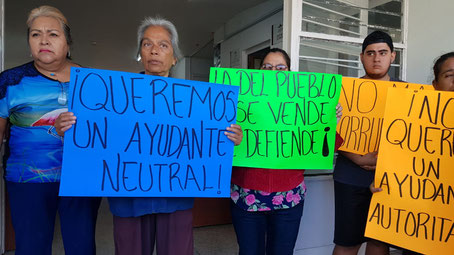 ¡QUEREMOS
UN AYUDANTE
NEUTRAL!
LO DEL PUEBLO
SE VENDE
DEFIENDE!
NO
¡NO
QUERE
UN
AYUDA
AUTORITA